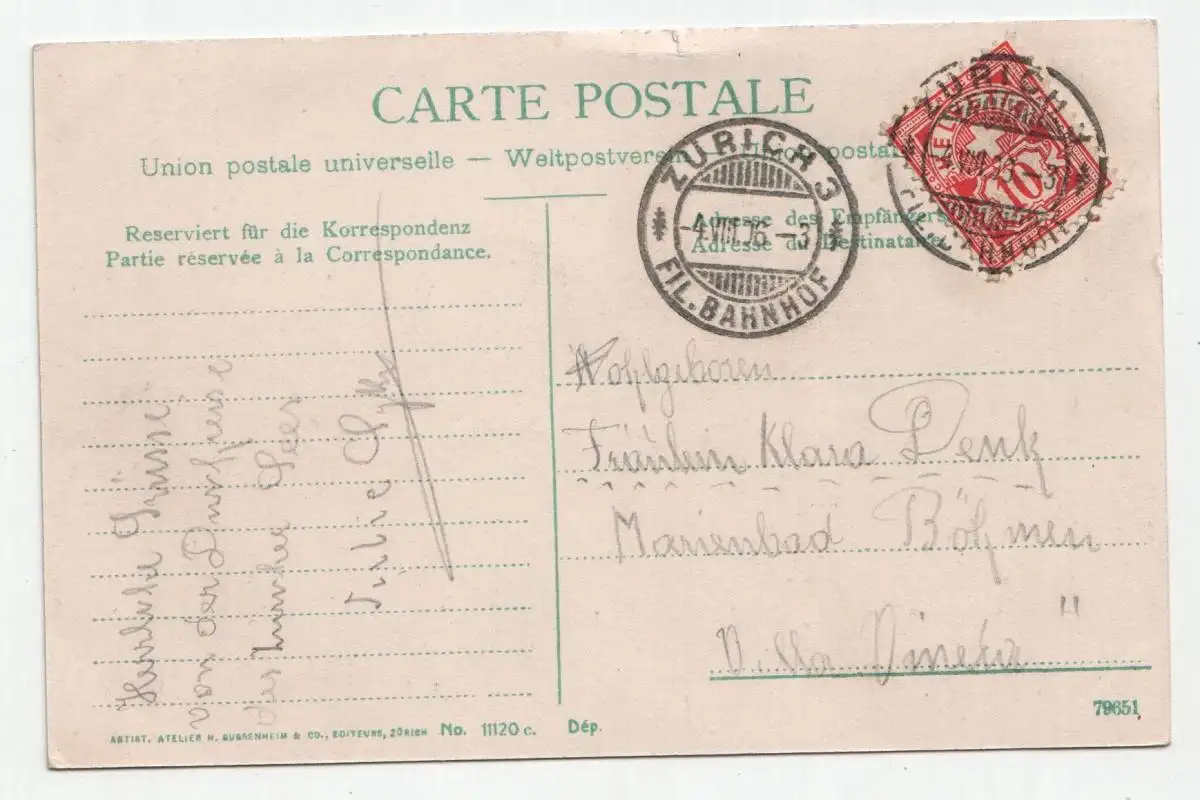 CARTE POSTALE
Union postale universelle — Weltpostverein
Reserviert für die Korrespondenz
Partie réservée à la Correspondance.
Adresse des Empfängers
Adresse du Destinataire
ZÜRICH 3
-4.VIII.06.-3
FIL. BAHNHOF
ZÜRICH
10
Herzliche Grüsse
von der Durchreise
Julie
Wohlgeboren
Fräulein Klara Denk
Marienbad Böhmen
Villa
ARTIST. ATELIER H. GUGGENHEIM & CO., EDITEURS, ZÜRICH No. 11120 c. Dép.
79651